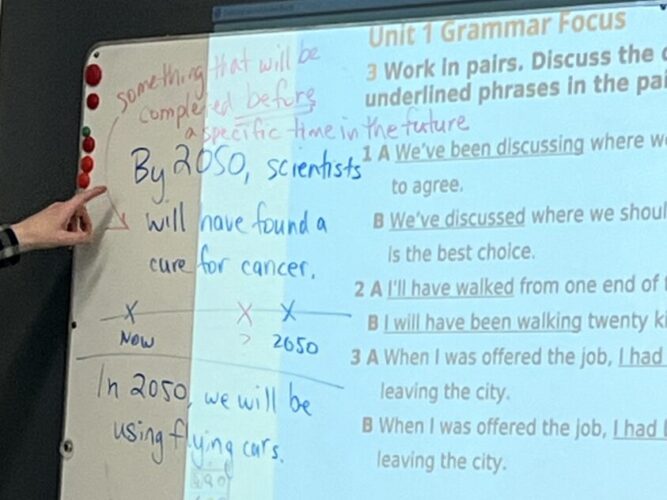 something that will be
completed before
a specific time in the future
By 2050, scientists
will have found a
cure for cancer.
Now ? 2050
In 2050, we will be
using flying cars.
Unit 1 Grammar Focus
3 Work in pairs. Discuss the
underlined phrases in the
1 A We've been discussing where
to agree.
B We've discussed where we
is the best choice.
2 A I'll have walked from one end of
B I will have been walking twenty
3 A When I was offered the job, I had
leaving the city.
B When I was offered the job, I had
leaving the city.